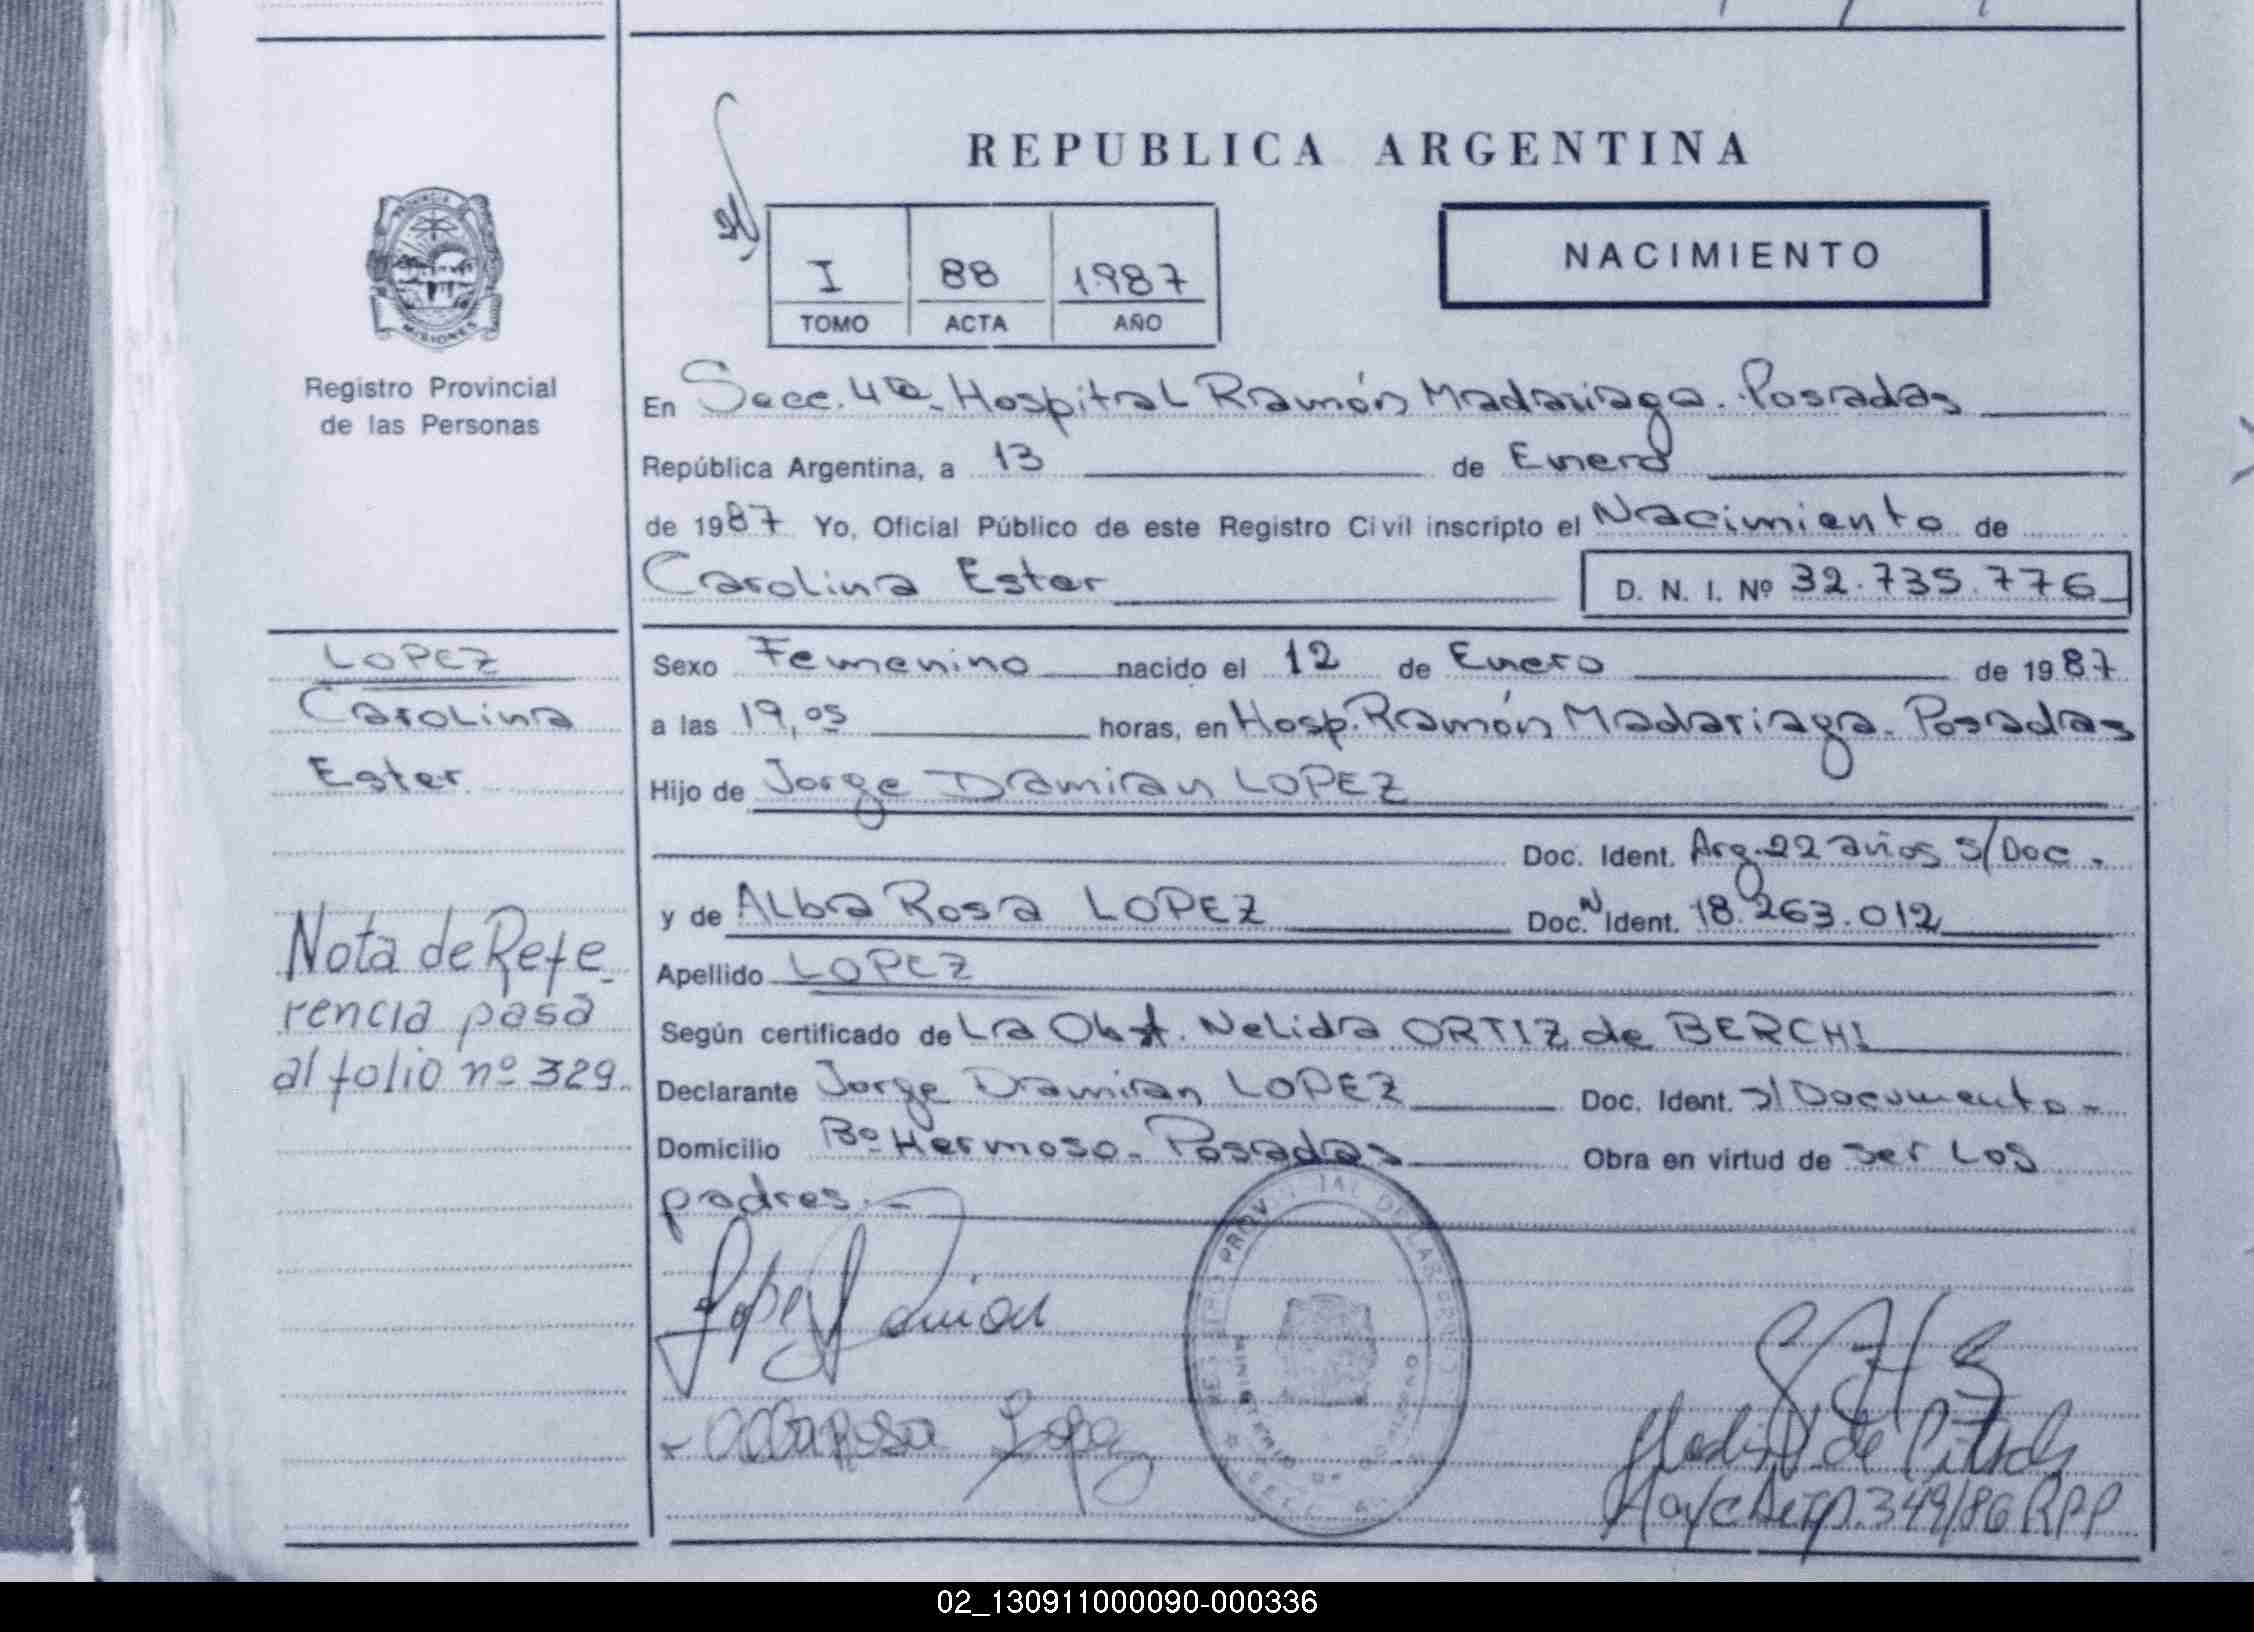 REPUBLICA ARGENTINA
PROVINCIA
MISIONES
Registro Provincial
de las Personas
I 88 1987
TOMO ACTA AÑO
NACIMIENTO
En Secc. 4ta. Hospital Ramón Madariaga. Posadas
República Argentina, a 13 de Enero
de 1987 Yo, Oficial Público de este Registro Civil inscripto el Nacimiento de
Carolina Ester D. N. I. Nº 32.735.776
LOPEZ
Carolina
Ester
Sexo Femenino nacido el 12 de Enero de 1987
a las 19,05 horas, en Hosp. Ramón Madariaga. Posadas
Hijo de Jorge Damian LOPEZ
Doc. Ident. Arg. 22 años s/Doc.
y de Alba Rosa LOPEZ Doc. N Ident. 18.263.012
Apellido LOPEZ
Según certificado de La Obst. Nelida ORTIZ de BERCHI
Declarante Jorge Damian LOPEZ Doc. Ident. s/Documento.-
Domicilio Bº Hermoso. Posadas Obra en virtud de ser los
padres.-
Nota de Refe-
rencia pasa
al folio nº 329.
Lopez Damian
Alba Rosa Lopez
349/86 RPP
02_130911000090-000336